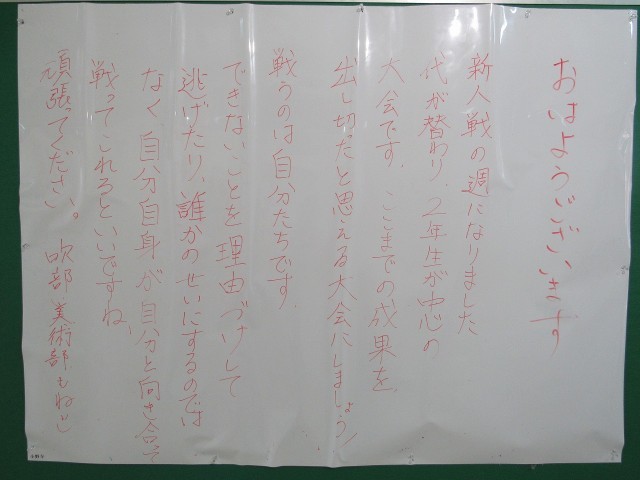 おはようございます
新人戦の週になりました
代が替わり、2年生が中心の
大会です。ここまでの成果を、
出し切ったと思える大会にしましょう!
戦うのは自分たちです。
できないことを理由づけして
逃げたり、誰かのせいにするのでは
なく自分自身が自分と向き合って
戦ってこれるといいですね。
頑張ってください。吹部、美術部もねじ